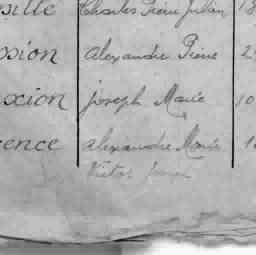 sille Charles Pierre Julien 18
ssion alexandre Pierre 2
xion joseph Marie 10
ence alexandre Marie 1
Victor